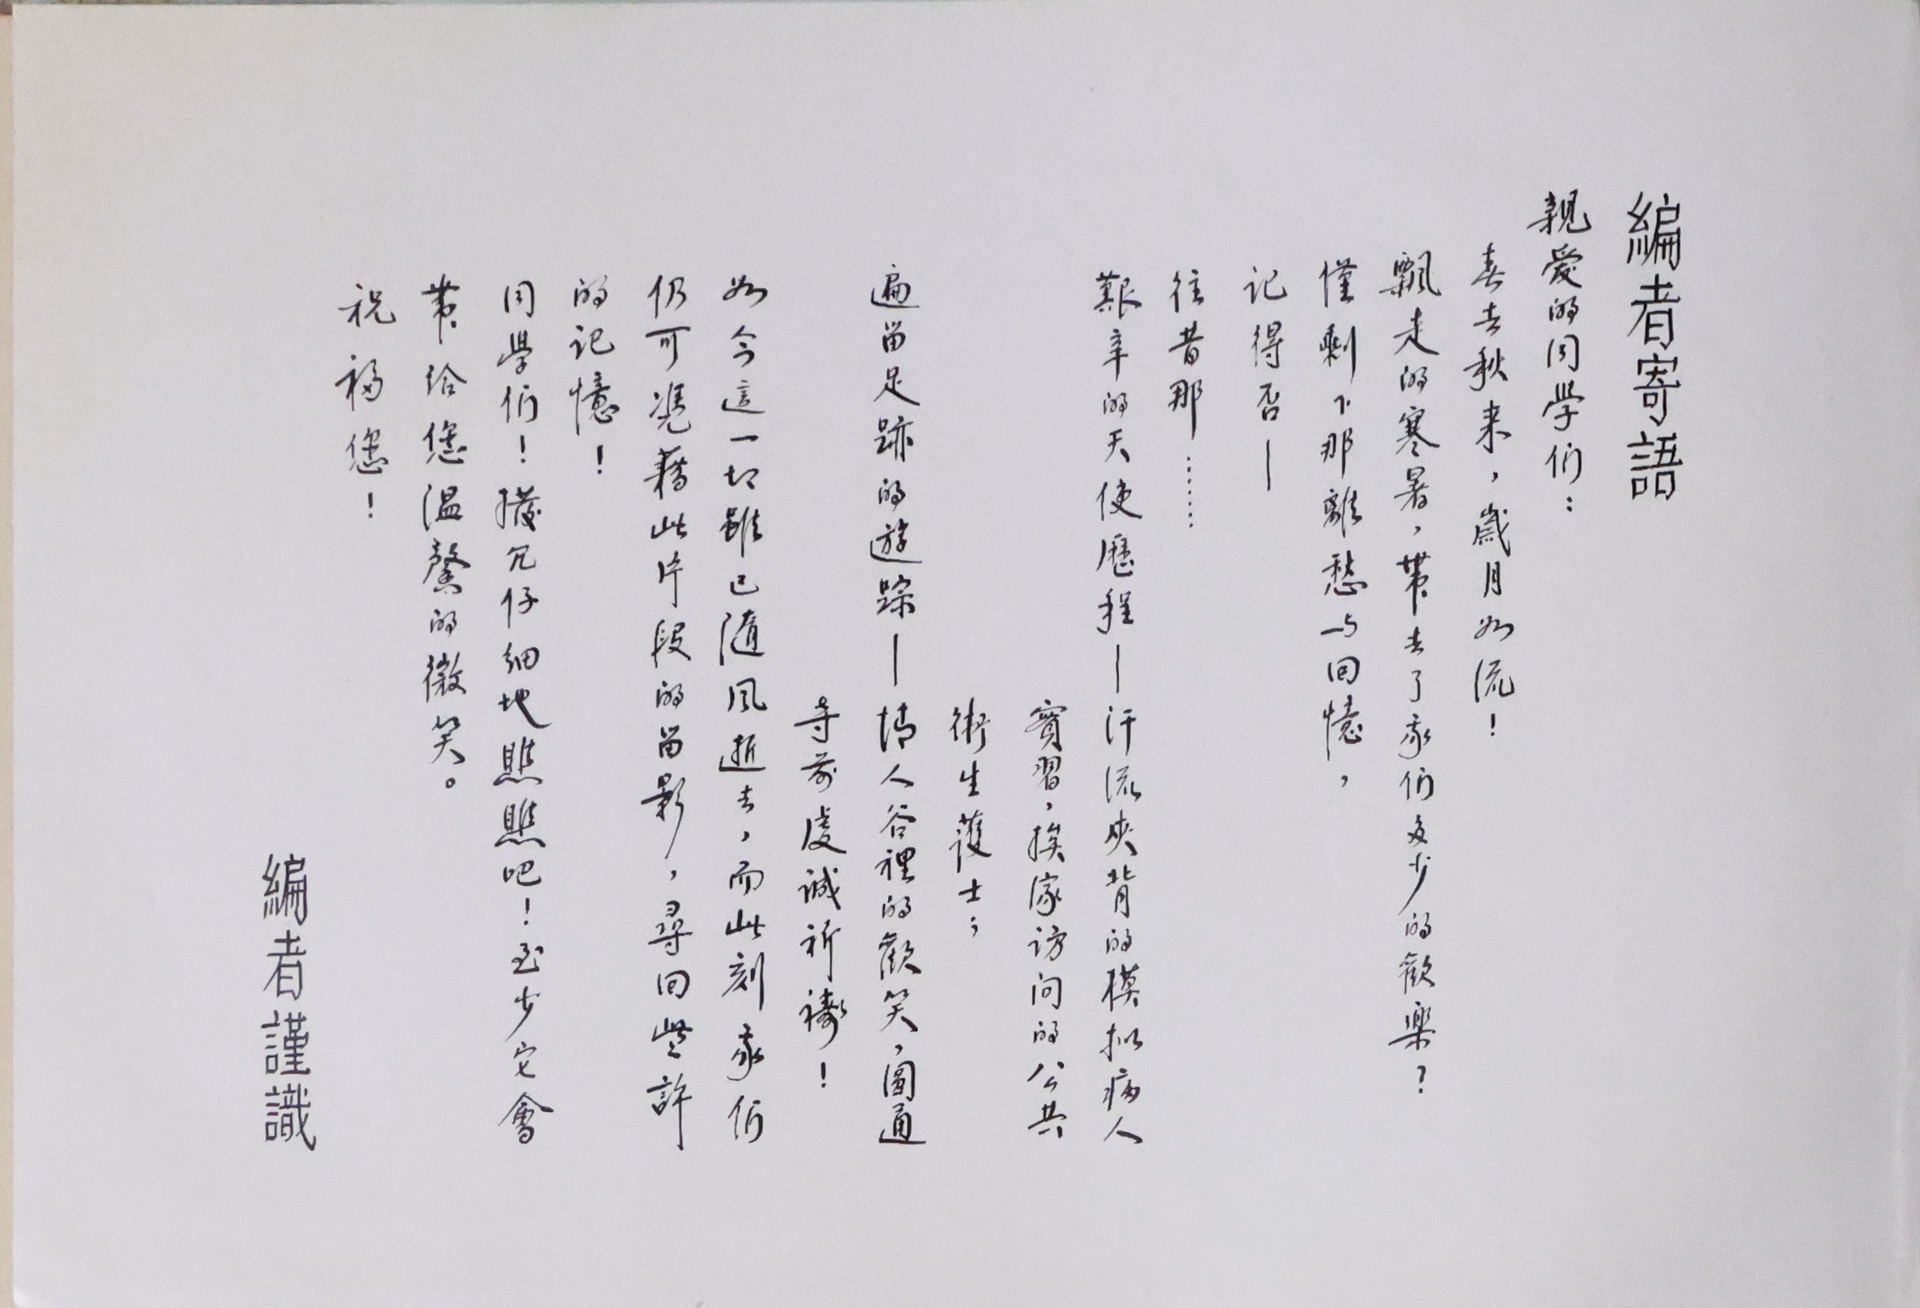 編者寄語
親愛的同學们：
春去秋来，歲月如流！
飄走的寒暑，带去了我们多少的歡樂？
僅剩下那離愁与回憶，
记得否—
往昔那……
艱辛的天使歷程—汗流夾背的模拟病人
實習，挨家访问的公共
衛生護士；
遍留足跡的遊踪—情人谷裡的歡笑，圓通
寺前虔誠祈禱！
如今這一切雖已随風逝去，而此刻我们
仍可憑藉此片段的留影，尋回些許
的记憶！
同學们！撥冗仔细地瞧瞧吧！至少它會
带给您溫馨的微笑。
祝福您！
編者謹識